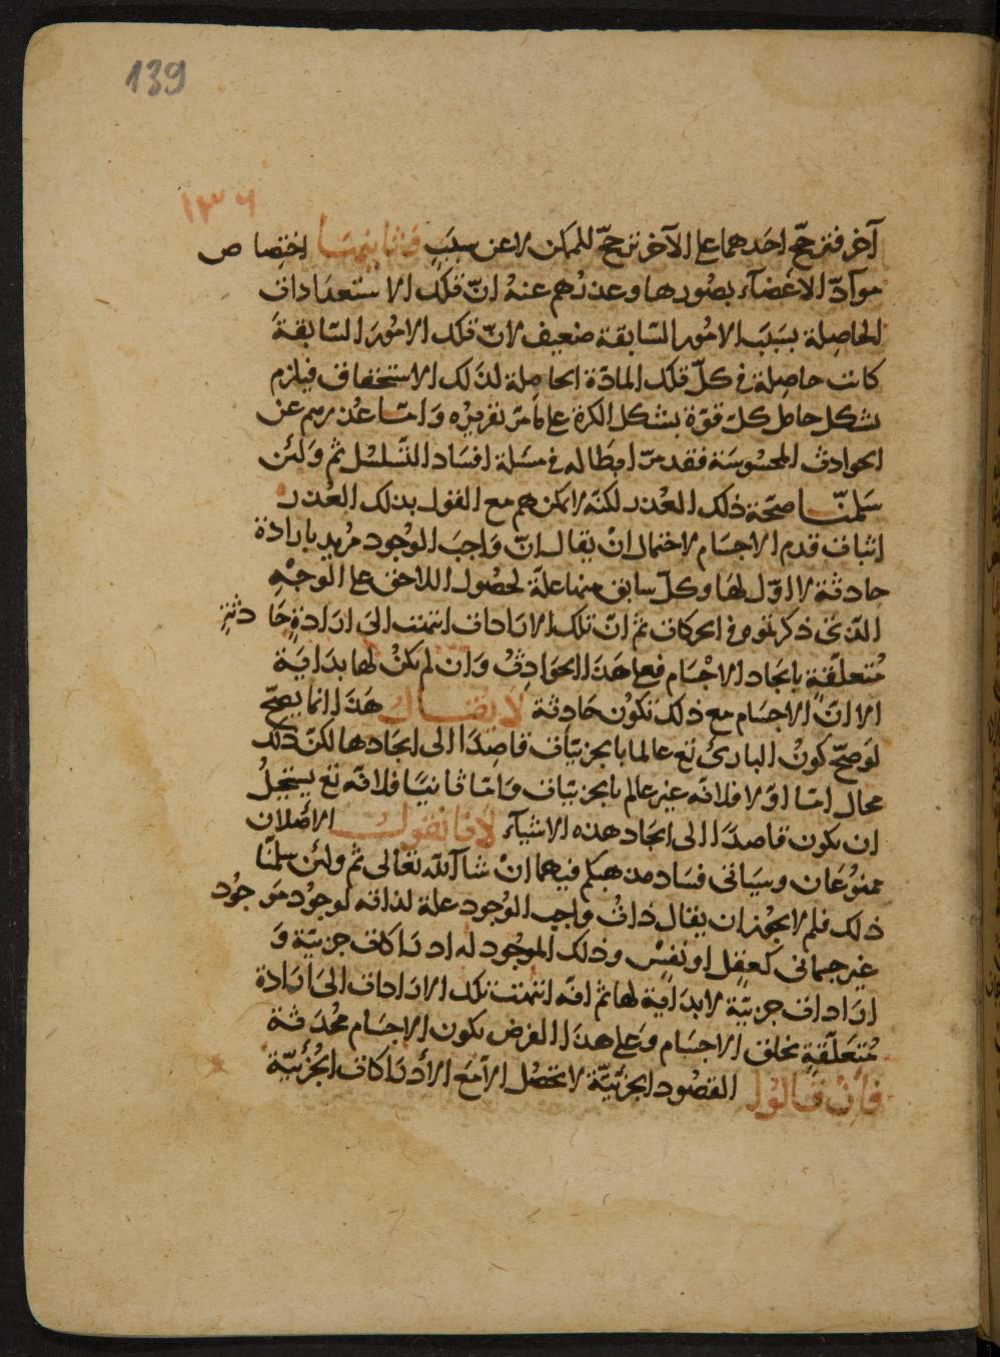 139
١٣٦
آخر فترجّح احدهما على الآخر ترجّح للممكن لا عن سبب وثانيهما اختصاص
موادّ الاعضآء بصورها وعذرهم عنهُ انّ تلك الاستعدادات
الحاصلة بسبَب الامُور السّابقة ضعيف لانّ تلك الامُورَ السّابقةَ
كانت حاصِلة في كلّ تلك المادّة الحاصِلة لذلك الاستحقاق فيلزم
تشكل حامل كلّ قوّة بشكل الكرة على مامرّ تقريرُه وَامّا عُذرهم عن
الحوادث المحسُوسَة فقد مرّ ابطاله في مسَلة افسَاد التّسلسُل ثم وَلئن
سَلمنّا صحّة ذلك العُذر لكنّه لا يمكنهم مع القول بذلك العُذر
اثبات قدم الاجسَام لاحتمال انْ يقال انّ وَاجبَ الوُجود مُريد بارادة
حادثة لا اوّل لهَا وكلّ سابق منها علّة لحصُول اللاحق على الوجهِ
الّذي ذكرتموه في الحركات ثمّ انّ تلك الارَادات انتهت الىَ ارَادةٍ حَادثةٍ
مُتعلّقةٍ بايجاد الاجْسَام فعلى هَذا الحوَادِثُ وَان لم يكنْ لها بدَايَة
الا انّ الاجسَام مع ذلك تكوْن حَادثة لا يقال هَذا انما يصحّ
لوَ صحّ كونُ البارئ تع عالما بالجزئيّات قاصِدًا الى ايجَادها لكنّ ذلك
محال امّا اوّلا فلانّه غير عالم بالجزئيّات وَامّا ثانيًا فلانّه تع يستحيلُ
ان يكون قاصدًا الى ايجَاد هذه الاشيآء لانا نقول الاصْلان
ممنوُعَان وسيَاتي فسَاد مذهبكم فيهما انْ شآ الله تعَالى ثمّ ولئن سلمنّا
ذلك فلم لا يجُوز ان يقال ذاتُ وَاجب الوُجود علة لذاته لوجوْد موَجوُد
غير جسماني كعقلٍ او نفسٍ وذلك الموجُود له ادرَاكات جزئيّة وَ
ارَادات جزئيّة لا بدَاية لها ثم انّه انتهت تلك الارَادات الىَ ارَادة
مُتعَلّقةٍ بخلق الاجسَام وَعلى هذا الفرض يكون الاجسَام مُحدَثة
فان قالوا القصُود الجزئيّة لا تحصُل الاّ مَع الأدرَاكات الجُزئيّة